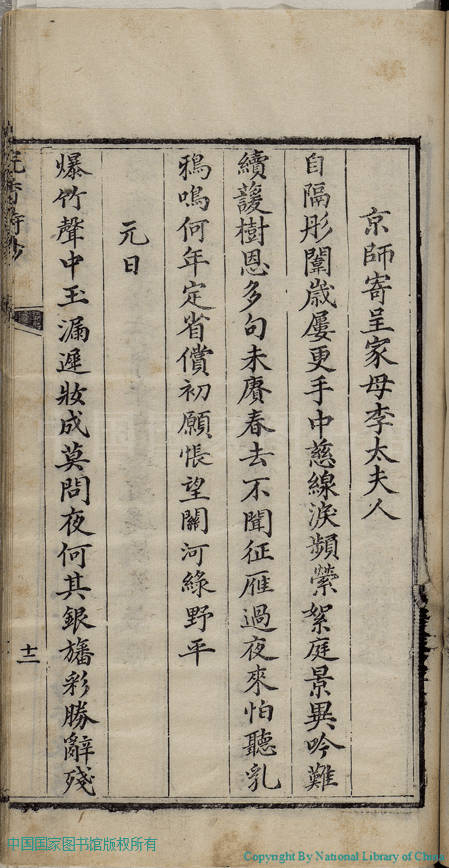 京師寄呈家母李太夫人
自隔彤闈歲屢更手中慈線淚頻縈絮庭景異吟難
續護樹恩多句未賡春去不聞征雁過夜來怕聽乳
鴉鳴何年定省償初願悵望關河綠野平
元日
爆竹聲中玉漏遲妝成莫問夜何其銀旛彩勝辭殘
十二
中国国家图书馆版权所有
Copyright By National Library of China